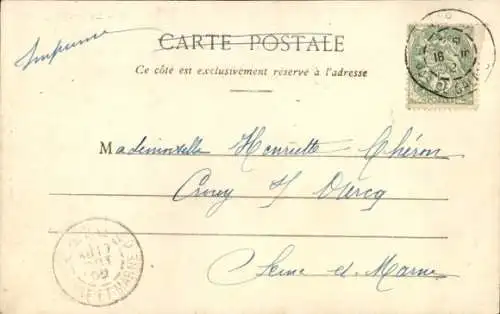 Imprimé
CARTE POSTALE
Ce côté est exclusivement réservé à l'adresse
Mademoiselle Henriette Chéron
Crouy s/ Ourcq
Seine-et-Marne